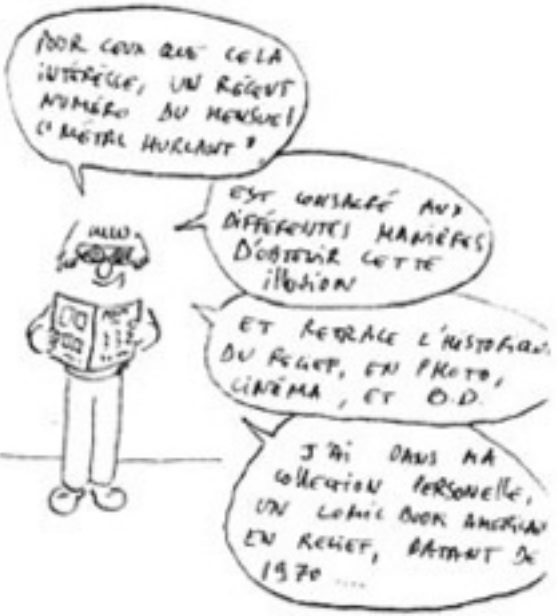 POUR CEUX QUE CELA
INTÉRESSE, UN RÉCENT
NUMÉRO DU MENSUEL
"MÉTAL HURLANT"
EST CONSACRÉ AUX
DIFFÉRENTES MANIÈRES
D'OBTENIR CETTE
illusion
ET RETRACE L'HISTORIQUE
DU RELIEF, EN PHOTO,
CINÉMA, ET B.D.
J'AI DANS MA
COLLECTION PERSONELLE,
UN COMIC BOOK AMERICAN
EN RELIEF, DATANT DE
1970 ....